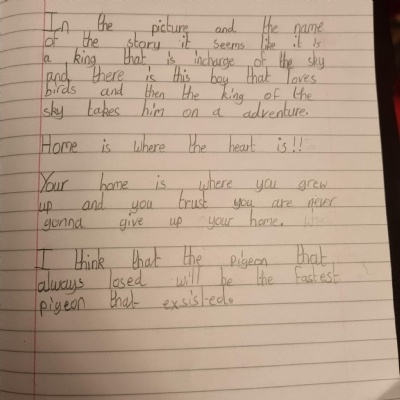 In the picture and the name
of the story it seems like it is
a king that is incharge of the sky
and there is this boy that loves
birds and then the king of the
sky takes him on a adventure.
Home is where the heart is!!
Your home is where you grew
up and you trust you are never
gonna give up your home.
I think that the pigeon that
always losed will be the fastest
pigeon that exsisted.